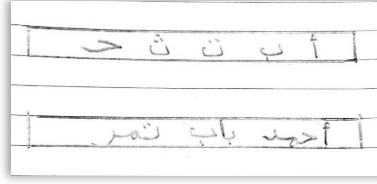 أ ب ت ث ح
أحمد باب تمر